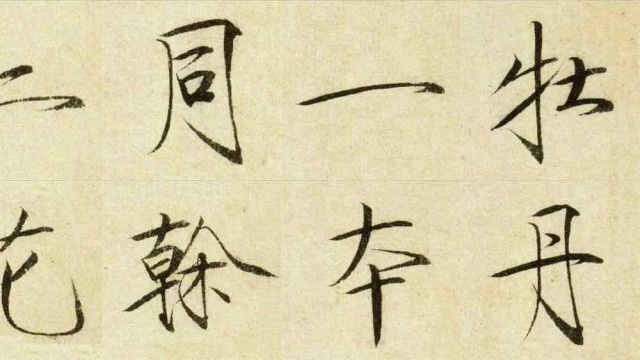 牡丹
一本
同榦
二花